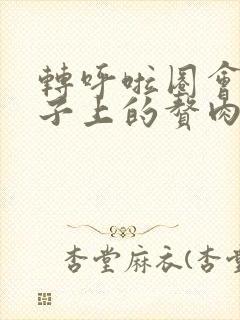 轉呼啦圈會
子上的贅肉
杏堂麻衣(杏堂